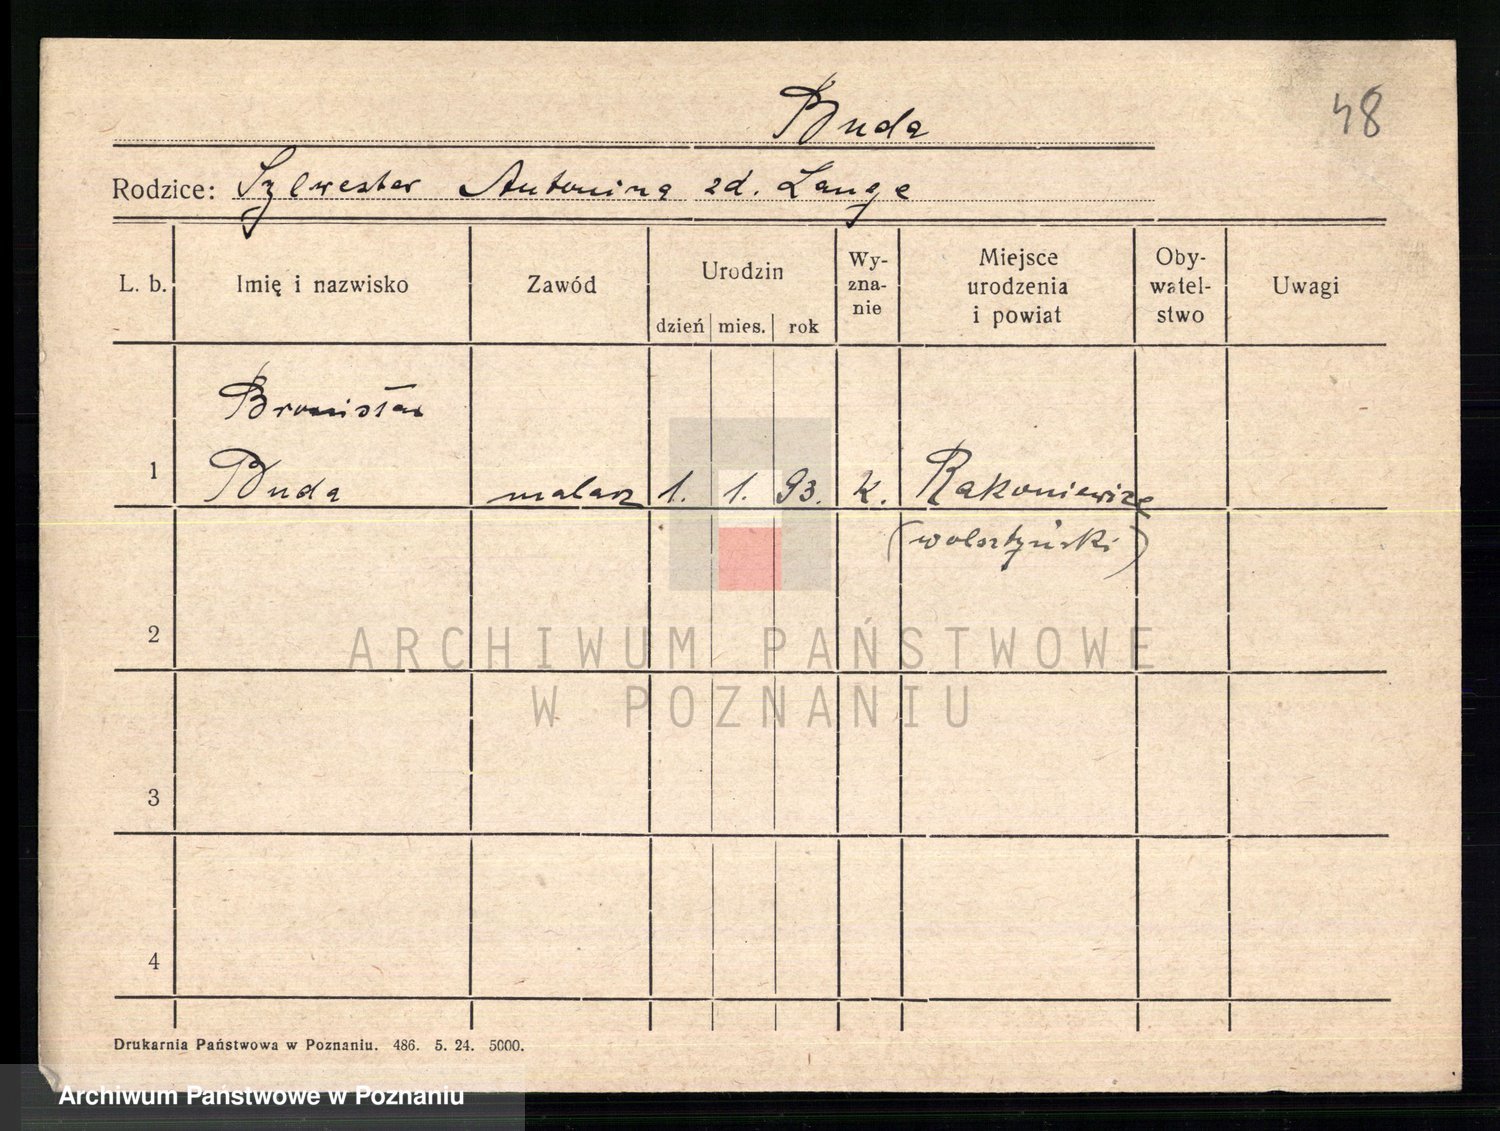 Buda
48
Rodzice: Sylwester Antonina zd. Lange
L. b.
Imię i nazwisko
Zawód
Urodzin
dzień mies. rok
Wy-
zna-
nie
Miejsce
urodzenia
i powiat
Oby-
watel-
stwo
Uwagi
Bronisław
1 Buda malarz 1. 1. 93. k. Rakoniewice
(wolsztyński)
2
ARCHIWUM PAŃSTWOWE
W POZNANIU
3
4
Drukarnia Państwowa w Poznaniu. 486. 5. 24. 5000.
Archiwum Państwowe w Poznaniu